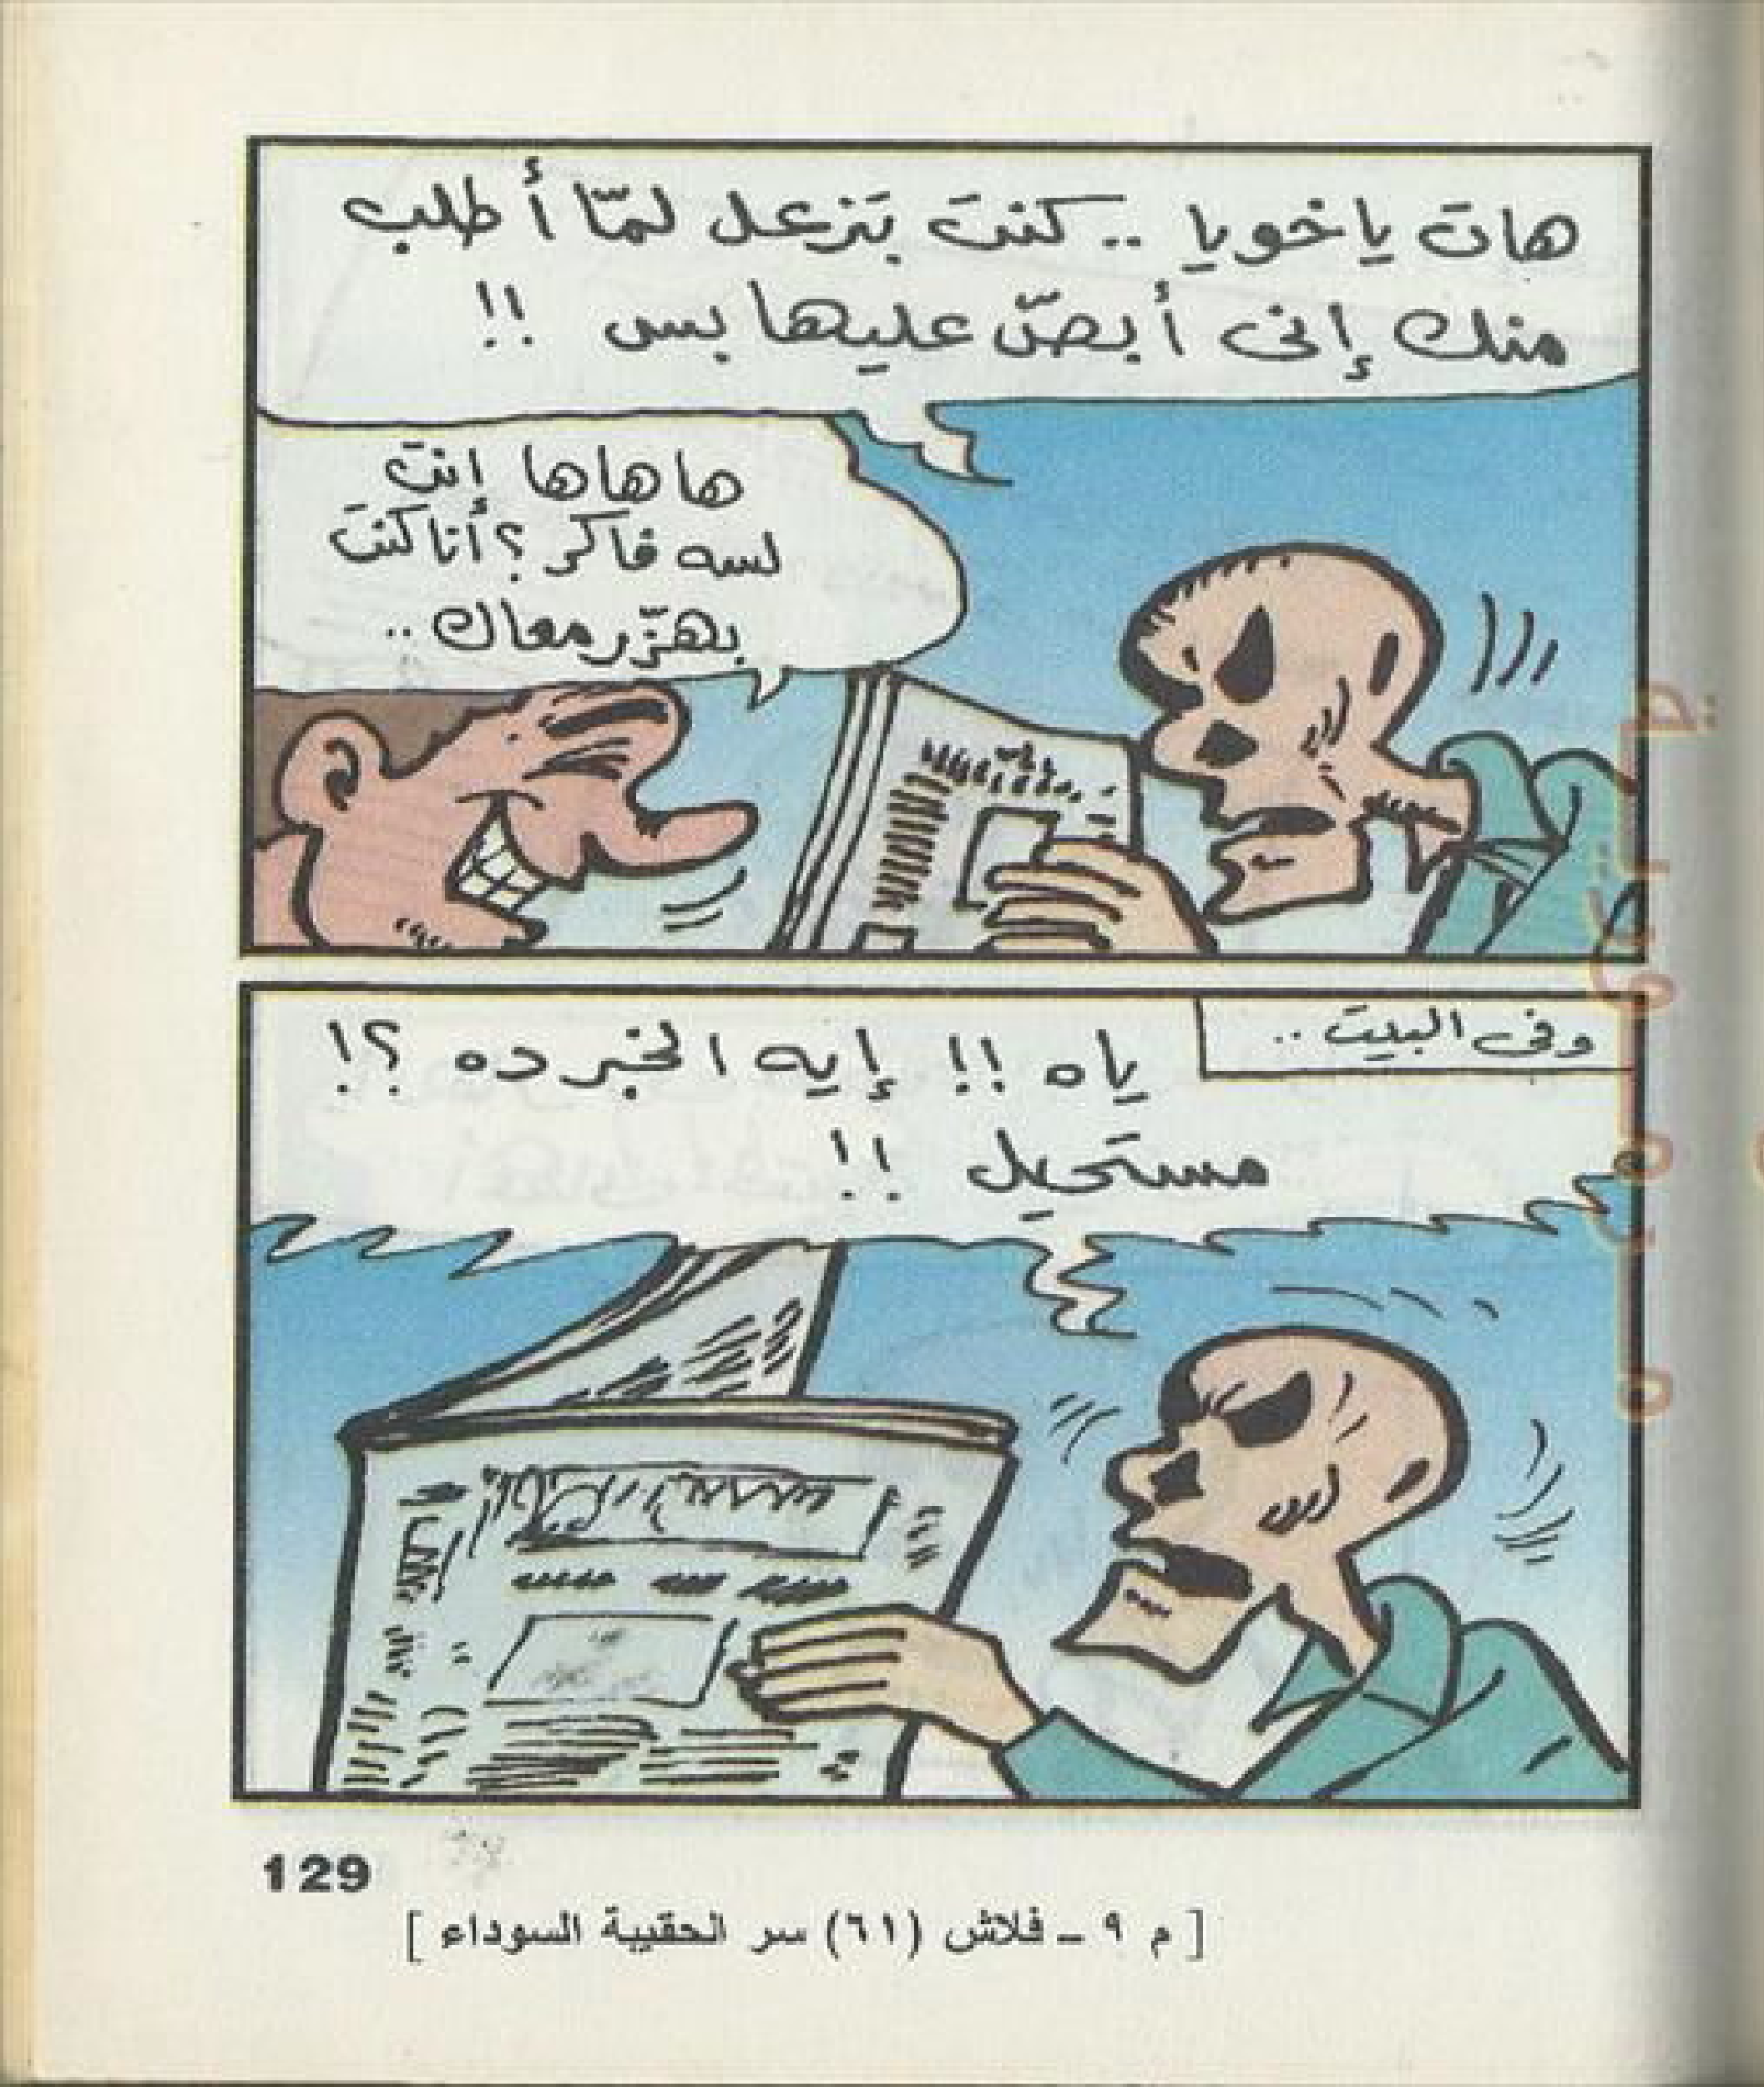 هات ياخويا .. كنت بتزعل لمّا أطلب
منك إنى أبصّ عليها بس !!
ها ها ها إنت
لسه فاكر ؟ أنا كنت
بهزّر معاك ..
وفى البيت ..
ياه !! إيه الخبر ده ؟!
مستحيل !!
129
[ م ٩ ـ فلاش (٦١) سر الحقيبة السوداء ]